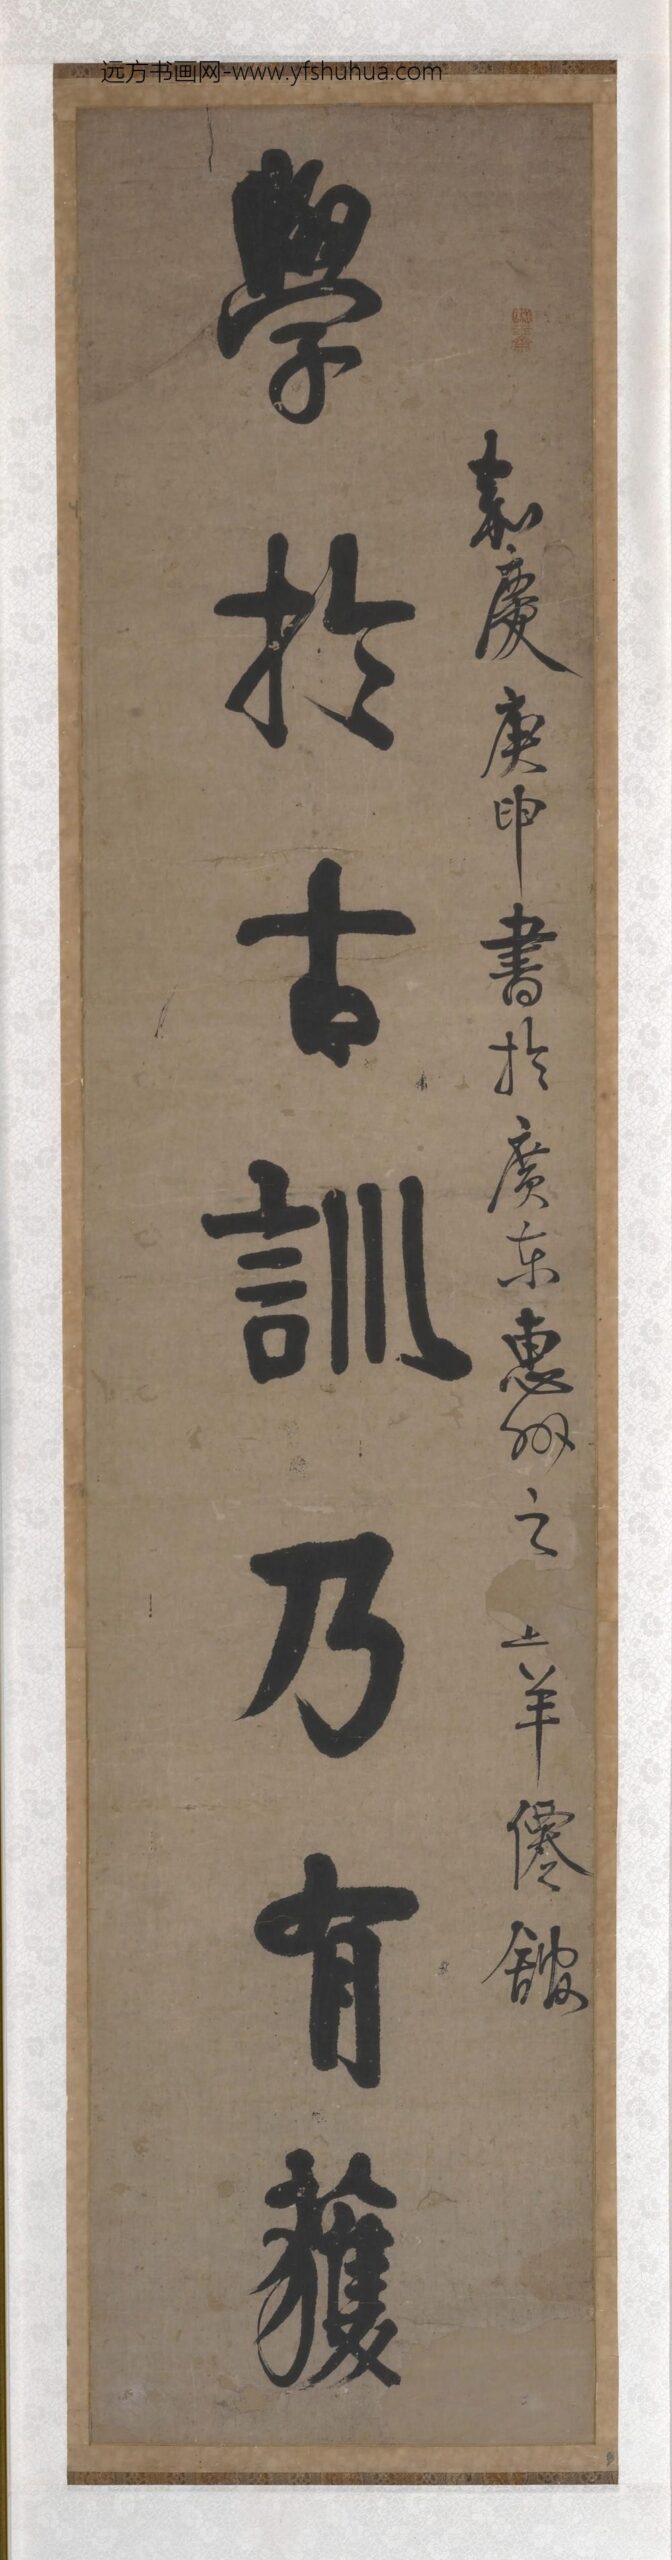 远方书画网-www.yfshuhua.com
嘉慶庚申書於廣东惠州之 羊僊館
學於古訓乃有獲